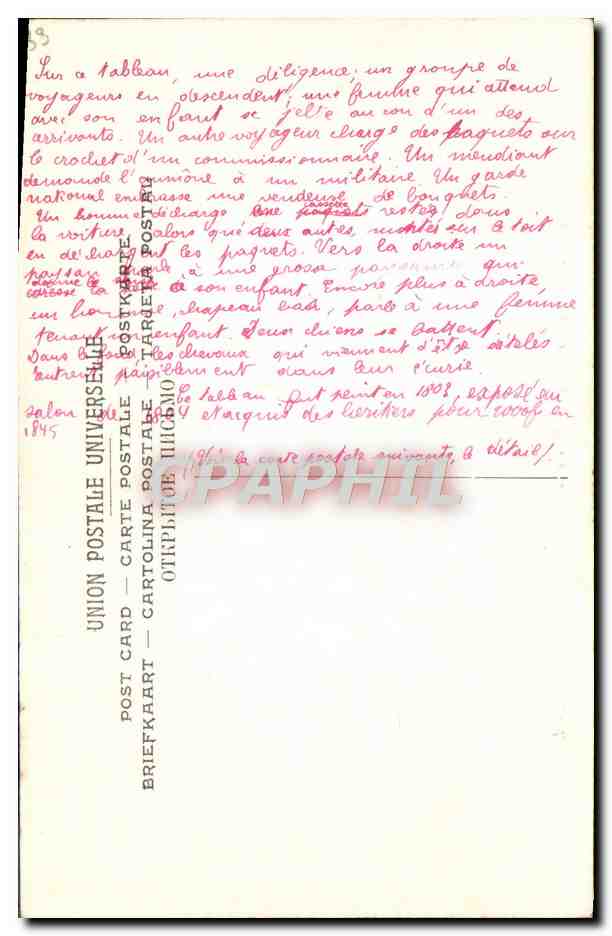 39
Sur ce tableau, une diligence; un groupe de
voyageurs en descendent; une femme qui attend
avec son enfant se jette au cou d'un des
arrivants. Un autre voyageur charge des paquets sur
le crochet d'un commissionnaire. Un mendiant
demande l'aumône à un militaire. Un garde
national embrasse une vendeuse de bouquets.
Un homme décharge une caisse restée dans
la voiture, alors que deux autres, montés sur le toit
en déchargent les paquets. Vers la droite un
paysan à une grosse paysanne qui
donne la à son enfant. Encore plus à droite,
un homme, chapeau bas, parle à une femme
tenant un enfant. Deux chiens se battent.
Dans le fond les chevaux qui viennent d'être dételés
rentrent paisiblement dans leur écurie.
Ce tableau fut peint en 1803, exposé au
salon de 1804 et acquis des héritiers pour 2000f en
1845
(Voir la carte postale suivante, le détail).
CPAPHIL
UNION POSTALE UNIVERSELLE
POST CARD — CARTE POSTALE — POSTKARTE
BRIEFKAART — CARTOLINA POSTALE — TARJETA POSTAL
ОТКРЫТОЕ ПИСЬМО